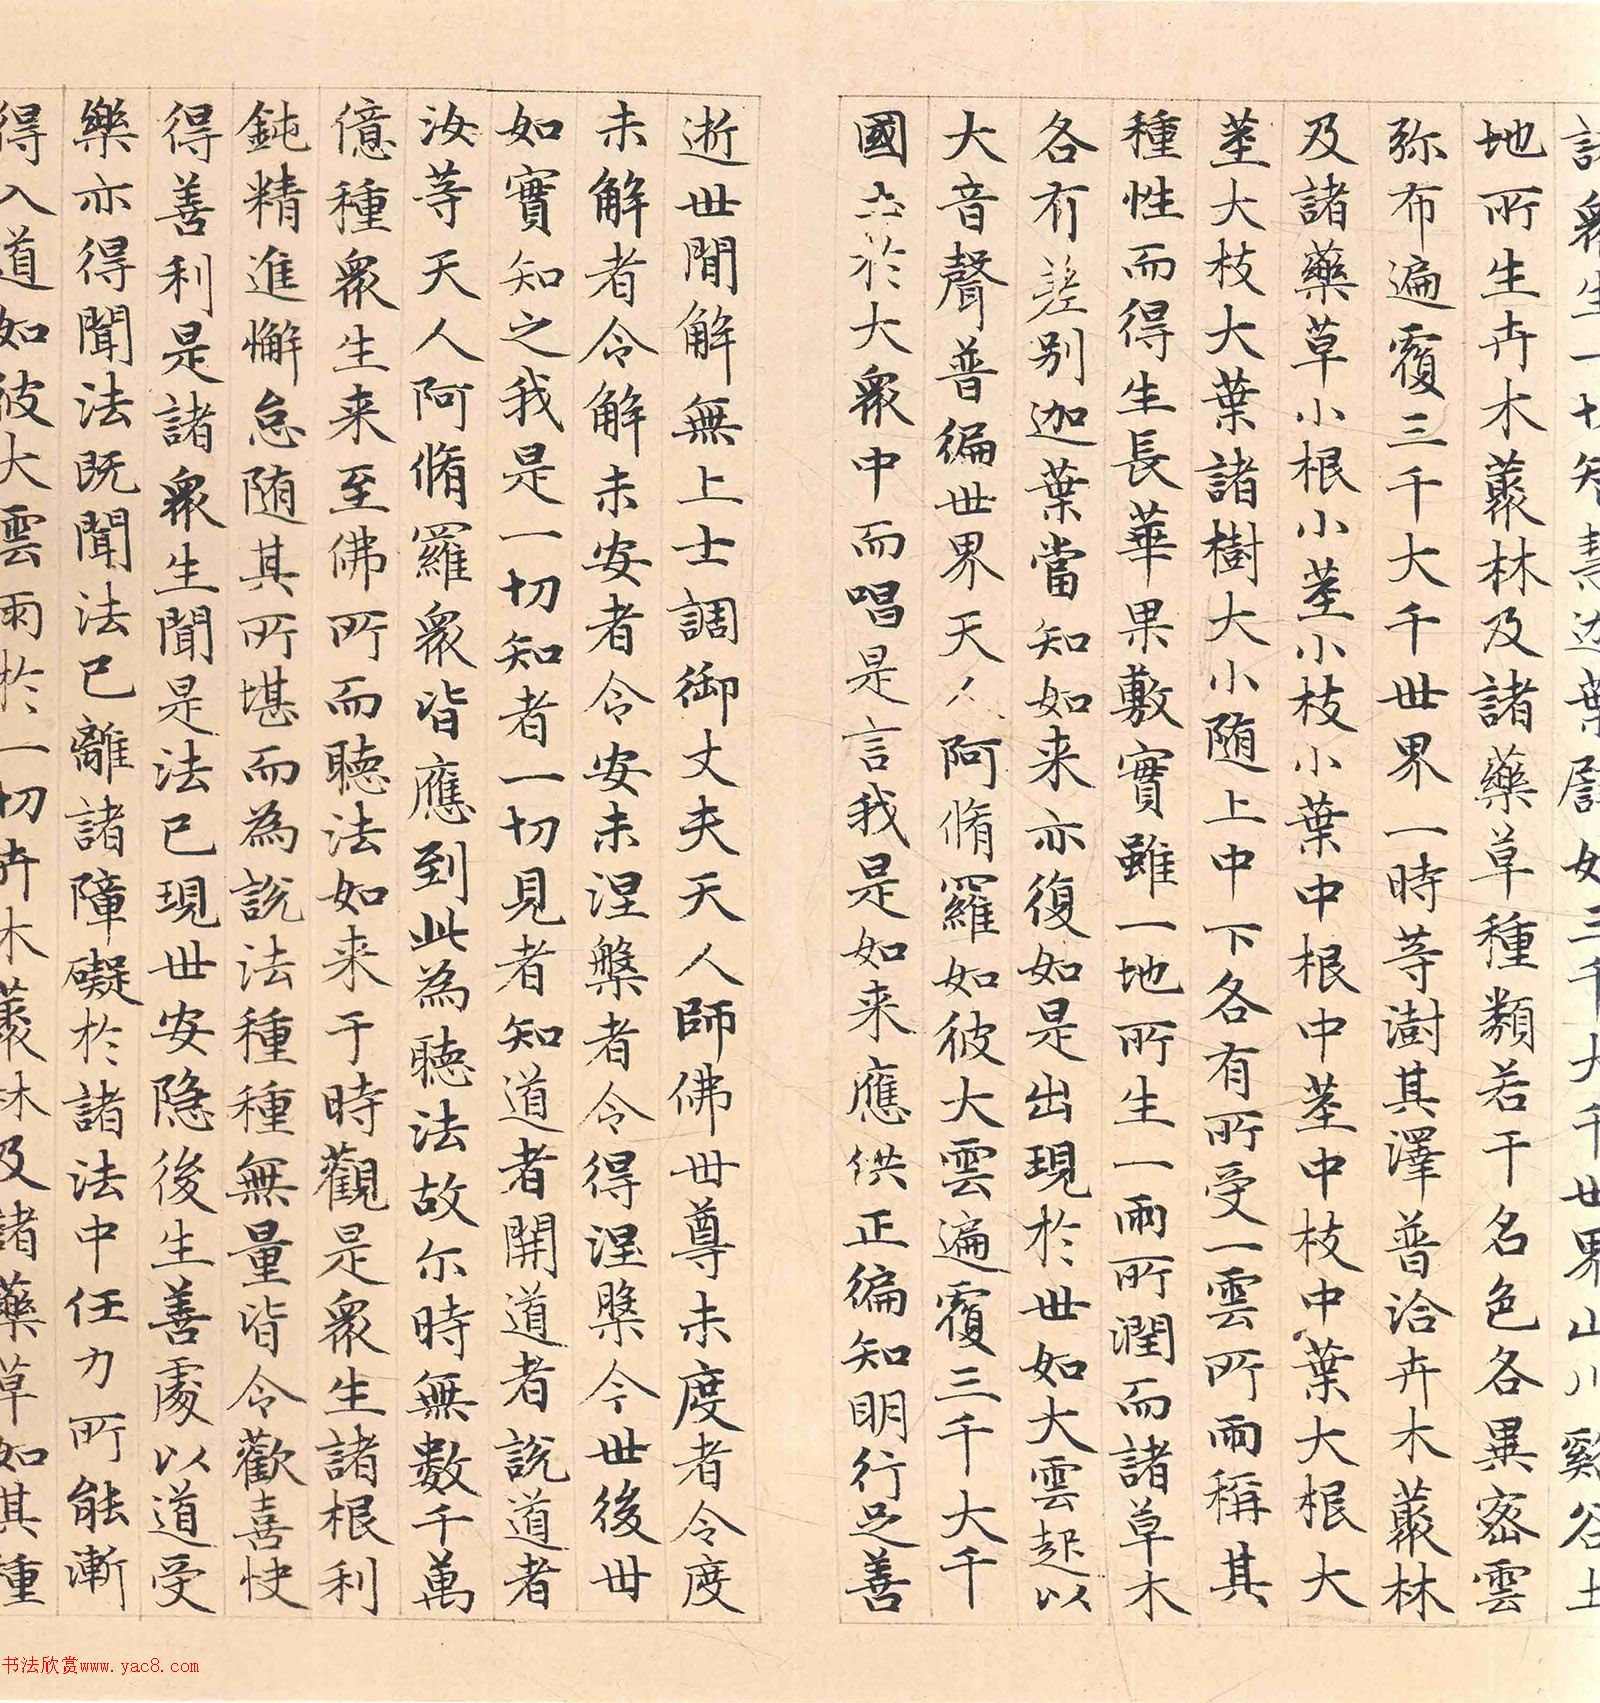 諸眾生一切智慧迦葉譬如三千大千世界山川谿谷土
地所生卉木叢林及諸藥草種類若干名色各異密雲
弥布遍覆三千大千世界一時等澍其澤普洽卉木叢林
及諸藥草小根小莖小枝小葉中根中莖中枝中葉大根大
莖大枝大葉諸樹大小随上中下各有所受一雲所雨稱其
種性而得生長華果敷實雖一地所生一雨所潤而諸草木
各有差別迦葉當知如来亦復如是出現於世如大雲起以
大音聲普徧世界天人阿脩羅如彼大雲遍覆三千大千
國土於大眾中而唱是言我是如来應供正徧知明行足善
逝世間解無上士調御丈夫天人師佛世尊未度者令度
未解者令解未安者令安未涅槃者令得涅槃今世後世
如實知之我是一切知者一切見者知道者開道者說道者
汝等天人阿脩羅眾皆應到此為聽法故尔時無數千萬
億種眾生来至佛所而聽法如来于時觀是眾生諸根利
鈍精進懈怠随其所堪而為說法種種無量皆令歡喜快
得善利是諸眾生聞是法已現世安隱後生善處以道受
樂亦得聞法既聞法已離諸障礙於諸法中任力所能漸
得入道如彼大雲雨於一切卉木叢林及諸藥草如其種
书法欣赏www.yac8.com